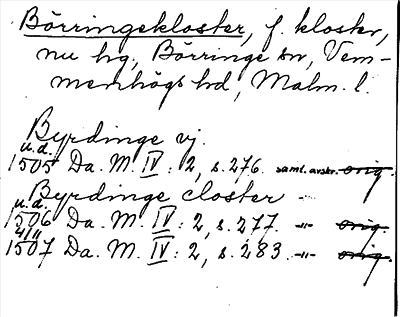 Börringekloster, f. kloster,
nu hg, Börringe sn, Vem-
menhögs hd, Malm. l.
Byrdinge vj.
u.d.
1505 Da. M. IV: 2, s. 276. saml. avskr. orig.
Byrdinge closter
u.d.
1506 Da. M. IV: 2, s. 277. -"- orig.
4/11
1507 Da. M. IV: 2, s. 283. -"- orig.